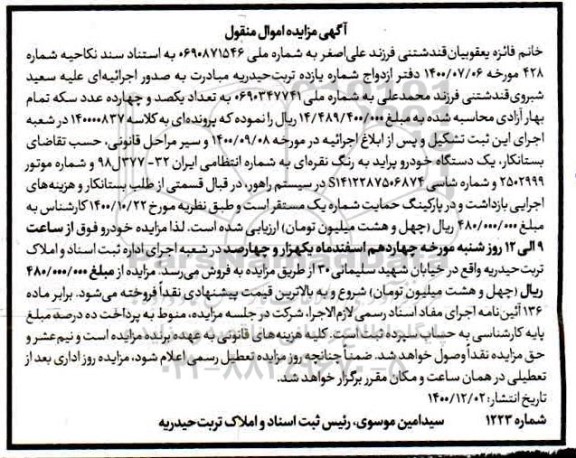 آگهی مزایده اموال منقول
خانم فائزه یعقوبیان قندشتنی فرزند علی‌اصغر به شماره ملی ۰۶۹۰۸۷۱۵۴۶ به استناد سند نکاحیه شماره
۴۲۸ مورخه ۱۴۰۰/۰۷/۰۶ دفتر ازدواج شماره یازده تربت‌حیدریه مبادرت به صدور اجرائیه‌ای علیه سعید
شیروی قندشتنی فرزند محمدعلی به شماره ملی ۰۶۹۰۳۴۷۷۴۱ به تعداد یکصد و چهارده عدد سکه تمام
بهار آزادی محاسبه شده به مبلغ ۱۴/۴۸۹/۴۰۰/۰۰۰ ریال را نموده که پرونده‌ای به کلاسه ۱۴۰۰۰۰۸۳۷ در شعبه
اجرای این ثبت تشکیل و پس از ابلاغ اجرائیه در مورخه ۱۴۰۰/۰۹/۰۸ و سیر مراحل قانونی، حسب تقاضای
بستانکار، یک دستگاه خودرو پراید به رنگ نقره‌ای به شماره انتظامی ایران ۳۲- ۳۷۷ل۹۸ و شماره موتور
۲۵۰۲۹۹۹ و شماره شاسی S۱۴۱۲۲۸۷۵۰۶۸۷۴ در سیستم راهور، در قبال قسمتی از طلب بستانکار و هزینه‌های
اجرایی بازداشت و در پارکینگ حمایت شماره یک مستقر است و طبق نظریه مورخ ۱۴۰۰/۱۰/۲۲ کارشناس به
مبلغ ۴۸۰/۰۰۰/۰۰۰ ریال (چهل و هشت میلیون تومان) ارزیابی شده است. لذا مزایده خودرو فوق از ساعت
۹ الی ۱۲ روز شنبه مورخه چهاردهم اسفندماه یکهزار و چهارصد در شعبه اجرای اداره ثبت اسناد و املاک
تربت‌حیدریه واقع در خیابان شهید سلیمانی ۳۰ از طریق مزایده به فروش می‌رسد. مزایده از مبلغ ۴۸۰/۰۰۰/۰۰۰
ریال (چهل و هشت میلیون تومان) شروع و به بالاترین قیمت پیشنهادی نقداً فروخته می‌شود. برابر ماده
۱۳۶ آئین‌نامه اجرای مفاد اسناد رسمی لازم‌الاجرا، شرکت در جلسه مزایده، منوط به پرداخت ده درصد مبلغ
پایه کارشناسی به حساب سپرده ثبت است. کلیه هزینه‌های قانونی به عهده برنده مزایده است و نیم‌عشر و
حق مزایده نقداً وصول خواهد شد. ضمناً چنانچه روز مزایده تعطیل رسمی اعلام شود، مزایده روز اداری بعد از
تعطیلی در همان ساعت و مکان مقرر برگزار خواهد شد.
تاریخ انتشار: ۱۴۰۰/۱۲/۰۲
شماره ۱۲۲۳ سیدامین موسوی، رئیس ثبت اسناد و املاک تربت‌حیدریه